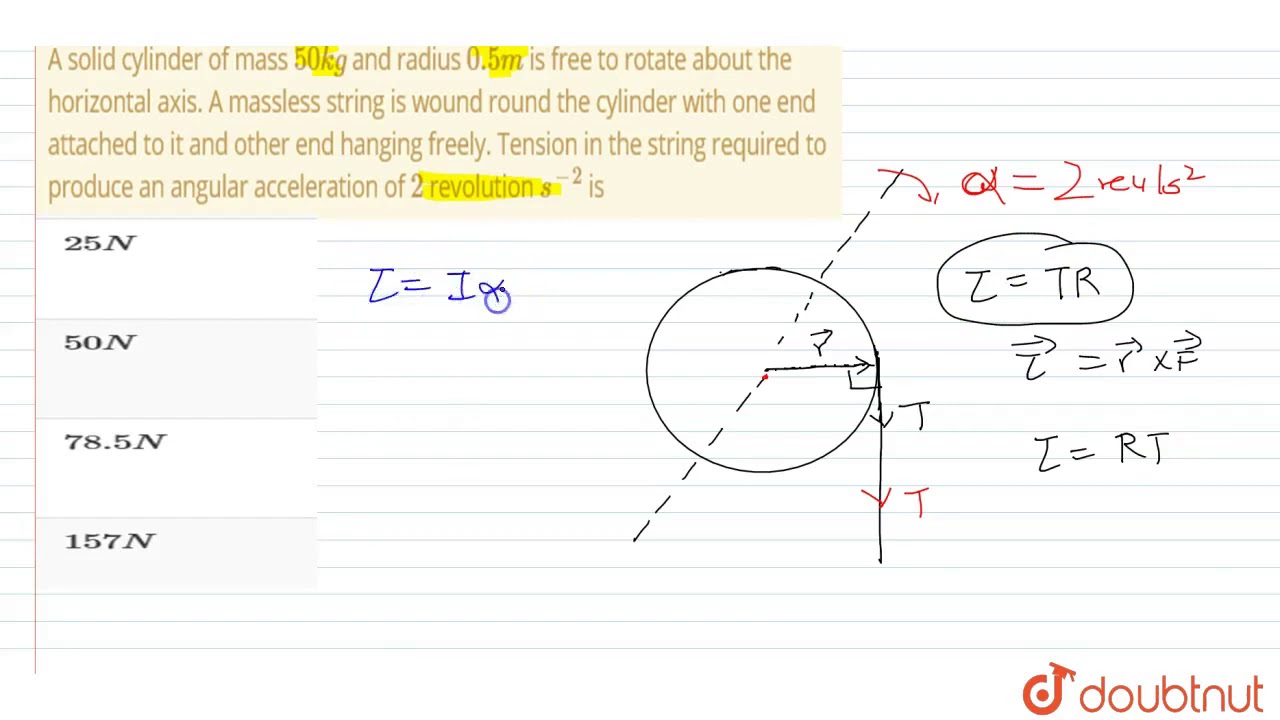 A solid cylinder of mass 50kg and radius 0.5m is free to rotate about the
horizontal axis. A massless string is wound round the cylinder with one end
attached to it and other end hanging freely. Tension in the string required to
produce an angular acceleration of 2 revolution s⁻² is
25N
50N
78.5N
157N
τ = Iα
α = 2 rev/s²
τ = TR
τ⃗ = r⃗ × F⃗
τ = RT
r⃗
T
T
doubtnut